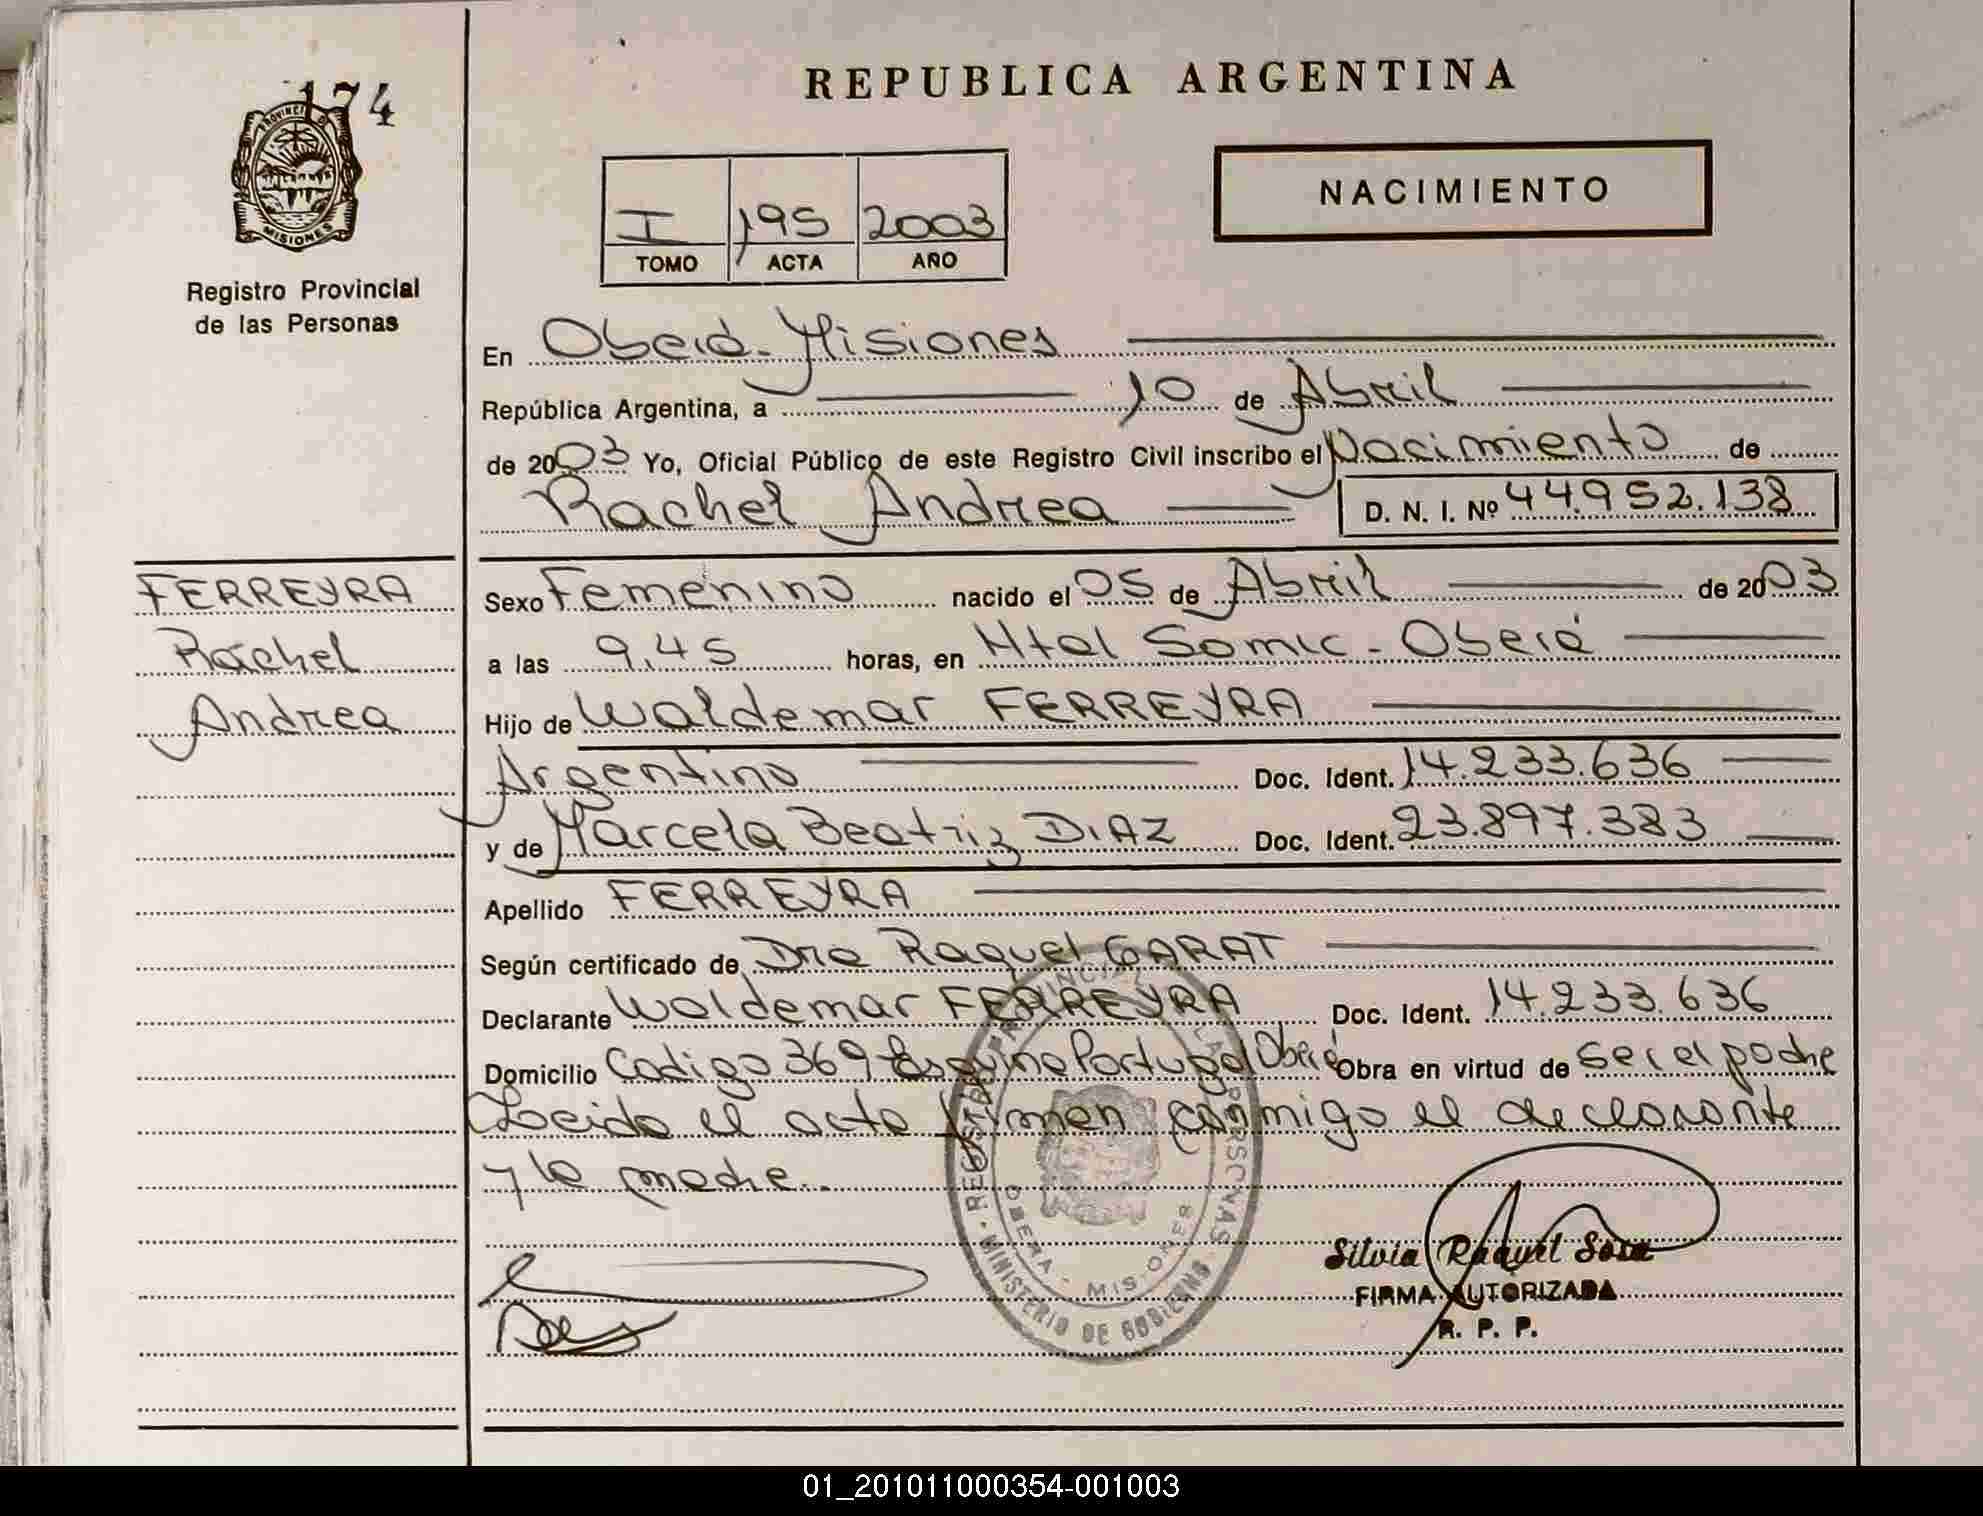 174
PROVINCIA DE
MISIONES
Registro Provincial
de las Personas
FERREYRA
Rachel
Andrea
REPUBLICA ARGENTINA
I 195 2003
TOMO ACTA AÑO
NACIMIENTO
En Oberá - Misiones
República Argentina, a 10 de Abril
de 2003 Yo, Oficial Público de este Registro Civil inscribo el Nacimiento de
Rachel Andrea D. N. I. Nº 44.952.138
Sexo Femenino nacido el 05 de Abril de 2003
a las 9,45 horas, en Htal Samic - Oberá
Hijo de Waldemar FERREYRA
Argentino Doc. Ident. 14.233.636
y de Marcela Beatriz DIAZ Doc. Ident. 23.897.383
Apellido FERREYRA
Según certificado de Dra Raquel GARAT
Declarante Waldemar FERREYRA Doc. Ident. 14.233.636
Domicilio Codigo 369 Esquina Portugal Oberá Obra en virtud de ser el padre
Leida el acta firman conmigo el declarante
y la madre.
REGISTRO PROVINCIAL DE LAS PERSONAS
MINISTERIO DE GOBIERNO
OBERA - MISIONES
Silvia Raquel Sosa
FIRMA AUTORIZADA
R. P. P.
01_201011000354-001003